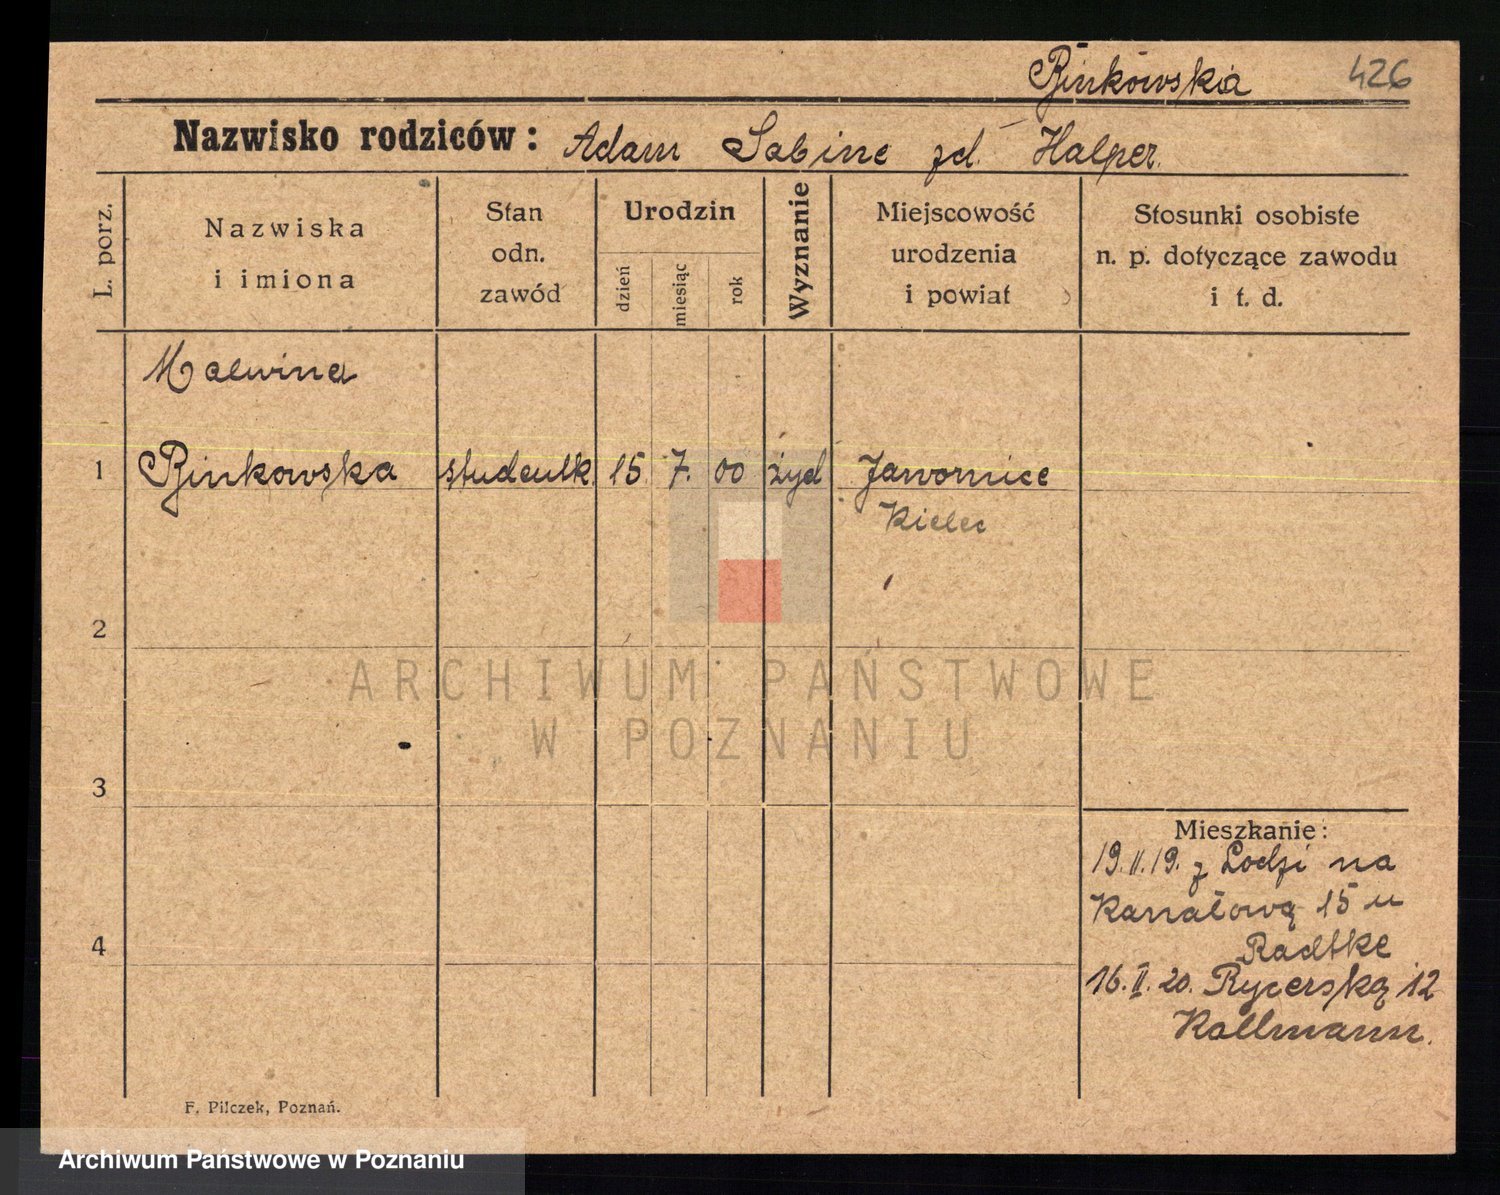 Binkowska 426
Nazwisko rodziców: Adam Sabine zd. Halper.
L. porz.
Nazwiska
i imiona
Stan
odn.
zawód
Urodzin
dzień
miesiąc
rok
Wyznanie
Miejscowość
urodzenia
i powiat
Stosunki osobiste
n. p. dotyczące zawodu
i t. d.
Malwina
1 Binkowska studentk. 15 7. 00 żyd Jawornice
Kielec
2
3
4
Mieszkanie:
19.II.19. z Łodzi na
Kanałową 15 u
Radtke
16.II.20. Rycerską 12
Kollmann.
F. Pilczek, Poznań.
ARCHIWUM PAŃSTWOWE
W POZNANIU
Archiwum Państwowe w Poznaniu